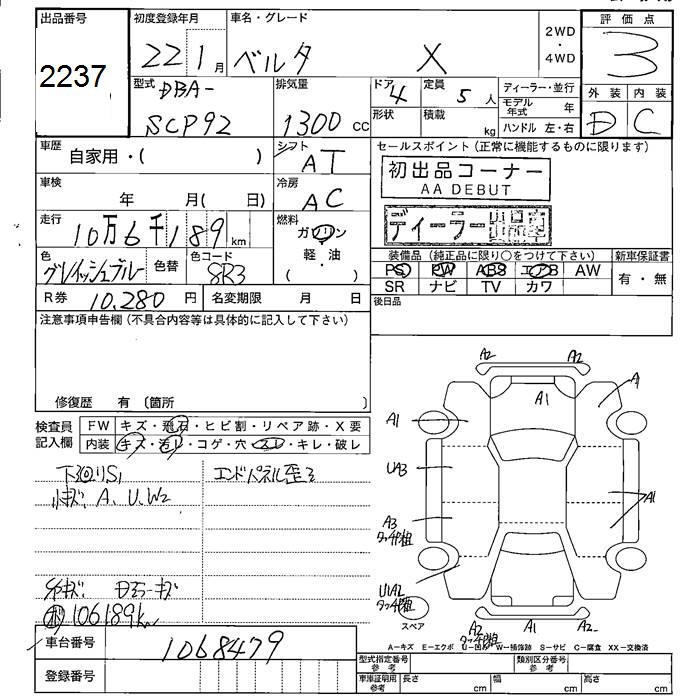 出品番号
2237
初度登録年月
22 1月
車名・グレード
ベルタ X
2WD・4WD
評価点
3
外装 内装
D C
型式
DBA-
SCP92
排気量
1300 cc
ドア 4
形状
定員 5 人
積載 kg
ディーラー・並行
モデル年式 年
ハンドル 左・右
車歴
自家用・( )
シフト
AT
車検
年 月( 日)
冷房
AC
走行
10万6千189 km
燃料
ガソリン
軽・油
( )
色
グレイッシュブルー
色替
色コード
8R3
R券 10,280 円
名変期限 月 日
セールスポイント(正常に機能するものに限ります)
初出品コーナー
AA DEBUT
ディーラー
装備品(純正品に限り○をつけて下さい)
新車保証書
PS PW ABS エアB AW
有・無
SR ナビ TV カワ
後日品
注意事項申告欄(不具合内容等は具体的に記入して下さい)
修復歴 有〔箇所 〕
検査員記入欄
FW キズ・飛石・ヒビ割・リペア跡・X要
内装 キズ・汚レ・コゲ・穴・スレ・キレ・破レ
下廻りS1
エンドパネル歪ミ
小キズ A、U、W2
106189km
車台番号
1068479
登録番号
A2 A2
A1
A1
A1
UA3
A3
タッチ
A1
U1A2
タッチ
スペア
A2
タッチ
A1
A2
A-キズ E-エクボ U-凹ミ W-補修跡 S-サビ C-腐食 XX-交換済
型式指定番号 参考
類別区分番号 参考
車庫証明用 参考
長さ cm
幅 cm
高さ cm